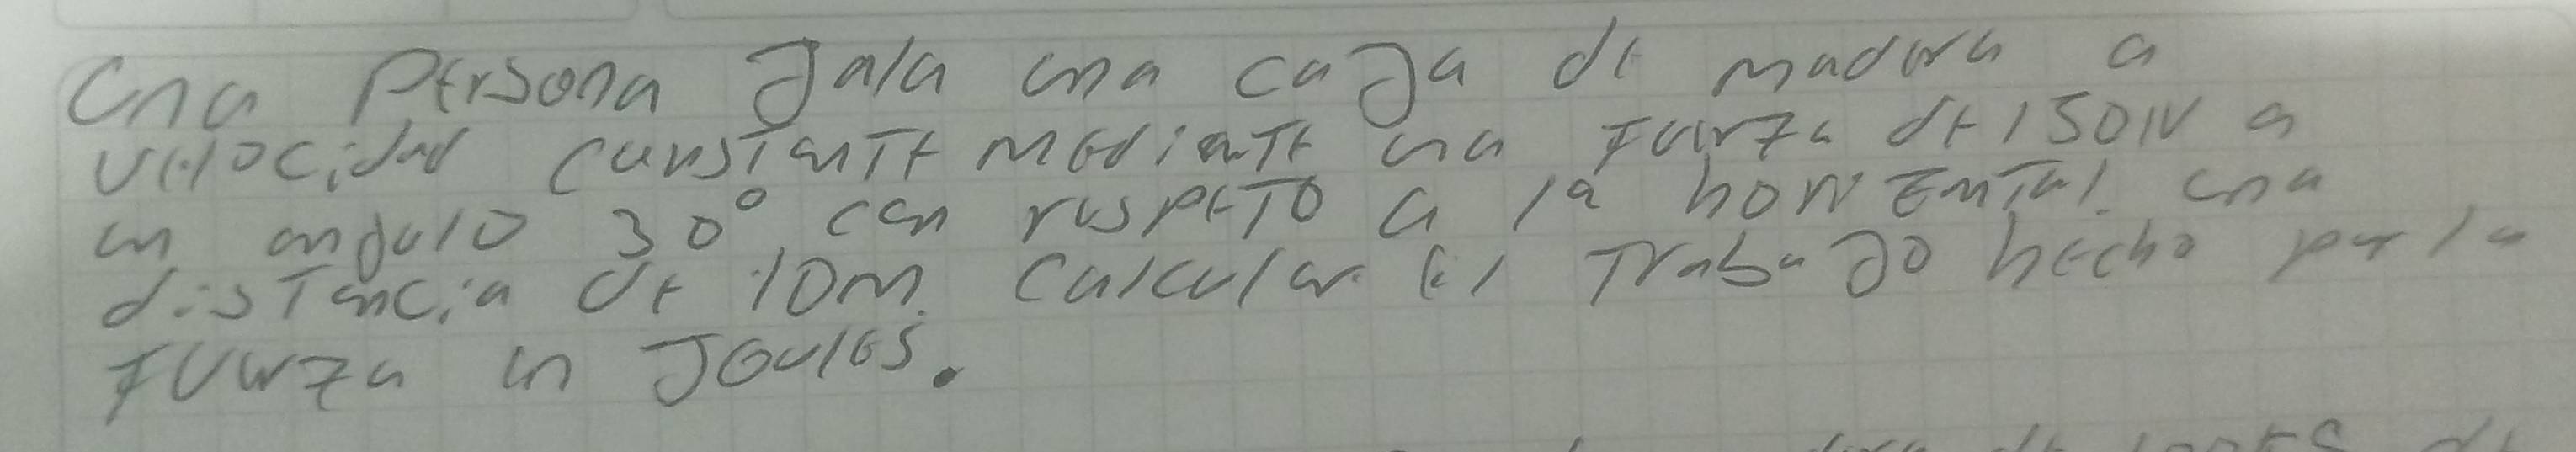 Una Persona Jala una caja de madera a
velocidad constante mediante una fuerza de 150N a
un angulo 30° con respeto a la horizental. una
distancia de 10m. Calcular el Trabajo hecho por la
fuerza en Joules.